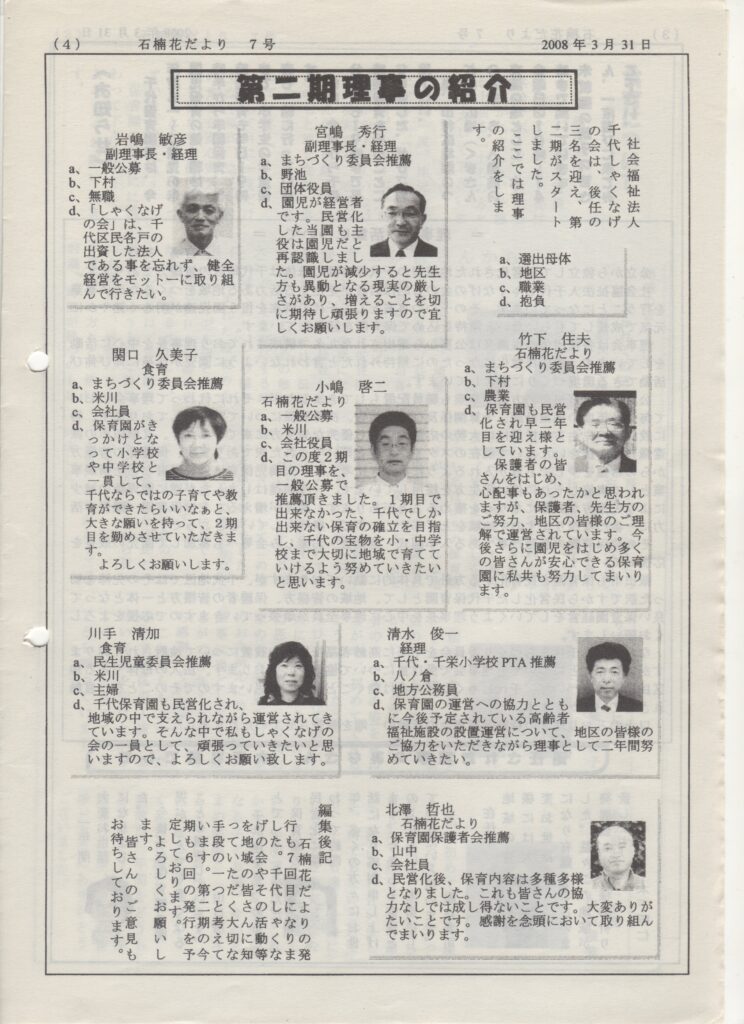 (4)　石楠花だより　7号　2008年3月31日
第二期理事の紹介
社会福祉法人
千代しゃくなげ
の会は、後任の
三名を迎え、第
二期がスタート
しました。
ここでは理事
の紹介をしま
す。
a、選出母体
b、地区
c、職業
d、抱負
宮嶋　秀行
副理事長・経理
a、まちづくり委員会推薦
b、野池
c、団体役員
d、園児が経営者
です。民営化
した当園も主
役は園児だと
再認識しまし
た。園児が減少すると先生
方も異動となる現実の厳し
さがあり、増えることを切
に期待し頑張りますので宜
しくお願いします。
岩嶋　敏彦
副理事長・経理
a、一般公募
b、下村
c、無職
d、「しゃくなげ
の会」は、千
代区民各戸の
出資した法人
である事を忘れず、健全
経営をモットーに取り組
んで行きたい。
竹下　住夫
石楠花だより
a、まちづくり委員会推薦
b、下村
c、農業
d、保育園も民営
化され早二年
目を迎え様と
しています。
保護者の皆
さんをはじめ、
心配事もあったかと思われ
ますが、保護者、先生方の
ご努力、地区の皆様のご理
解で運営されています。今
後さらに園児をはじめ多く
の皆さんが安心できる保育
園に私共も努力してまいり
ます。
小嶋　啓二
石楠花だより
a、一般公募
b、米川
c、会社役員
d、この度2期
目の理事を、
一般公募で
推薦頂きました。1期目で
出来なかった、千代でしか
出来ない保育の確立を目指
し、千代の宝物を小・中学
校まで大切に地域で育てて
いけるよう努めていきたい
と思います。
関口　久美子
食育
a、まちづくり委員会推薦
b、米川
c、会社員
d、保育園がき
っかけとな
って小学校
や中学校と
一貫して、
千代ならではの子育てや教
育ができたらいいなぁと、
大きな願いを持って、2期
目を勤めさせていただきま
す。
よろしくお願いします。
川手　清加
食育
a、民生児童委員会推薦
b、米川
c、主婦
d、千代保育園も民営化され、
地域の中で支えられながら運営されてき
ています。そんな中で私もしゃくなげの
会の一員として、頑張っていきたいと思
いますので、よろしくお願い致します。
清水　俊一
経理
a、千代・千栄小学校PTA推薦
b、八ノ倉
c、地方公務員
d、保育園の運営への協力ととも
に今後予定されている高齢者
福祉施設の設置運営について、地区の皆様の
ご協力をいただきながら理事として二年間努
めていきたい。
北澤　哲也
石楠花だより
a、保育園保護者会推薦
b、山中
c、会社員
d、民営化後、保育内容は多種多様
となりました。これも皆さんの協
力なしでは成し得ないことです。大変ありが
たいことです。感謝を念頭において取り組ん
でまいります。
編集後記
石楠花だよりの発
行も7回目になりま
した。千代しゃくな
げの会やその活動等
を地域の皆さんに知
っていただく大切な
手段の一つと考えて
います。第二期の今
期も6回の発行を予
定しております。
よろしくお願いし
ます。
皆さんのご意見も
お待ちしております。